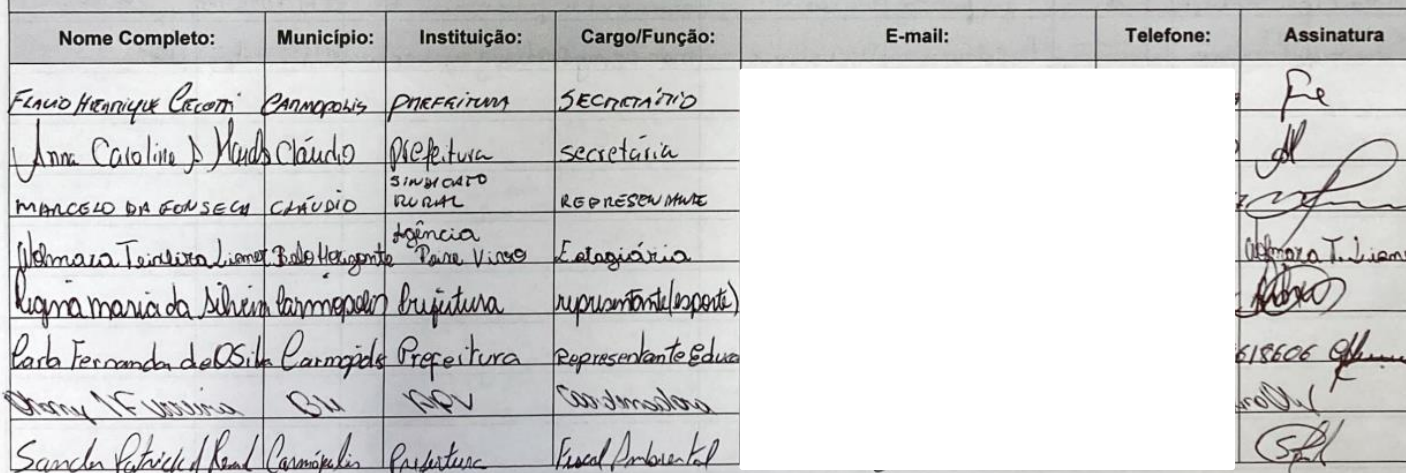 Nome Completo: Município: Instituição: Cargo/Função: E-mail: Telefone: Assinatura
Flavio Henrique Ceconi Carmopolis Prefeitura Secretário
Anna Caroline Cláudio Prefeitura secretária
SINDICATO
MARCELO DA FONSECA CLÁUDIO RURAL REPRESENTANTE
Agência
Teixeira Belo Horizonte Peixe Vivo Estagiária
maria da Silveira Carmopolis Prefeitura representante (esporte)
Carla Fernanda de O Silva Carmópolis Prefeitura Representante Educ
618606
BH APV Coordenadora
Sander Patrick Carmópolis Prefeitura Fiscal Ambiental